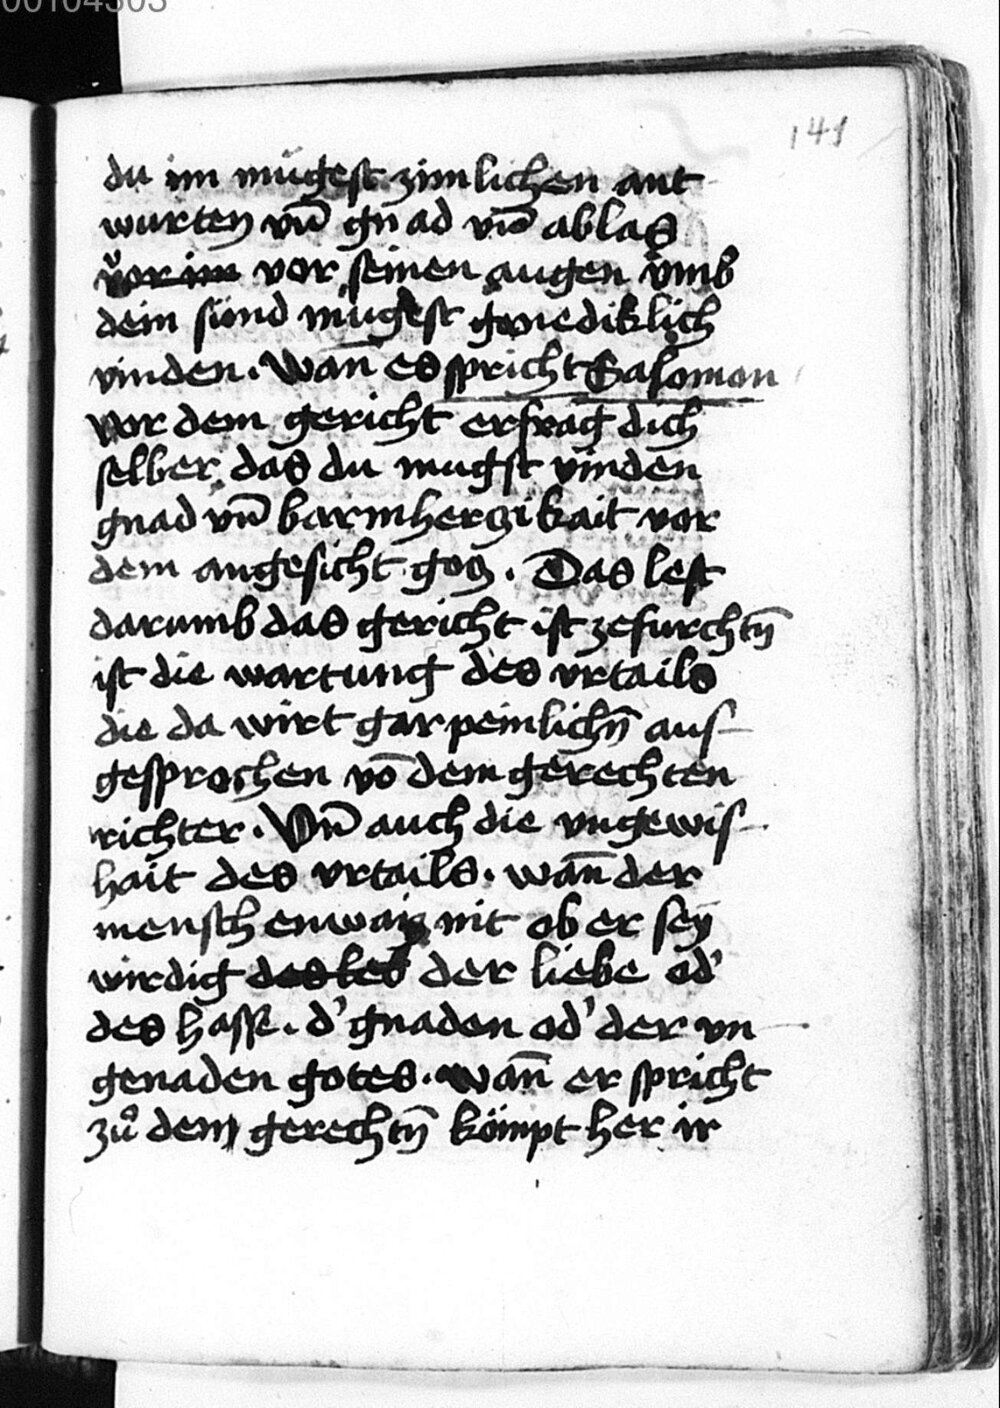 141
du im mügest zimlichen ant
wurten vn̄ gnad vn̄ ablas
vor im vor seinen augen vmb
dein sünd mügest gnediklich
vinden. Wan̄ es spricht Salomon
vor dem gericht erfrag dich
selber das du mugst vinden
gnad vn̄ barmherczikait vor
dem angesicht gocz. Das lest
darumb das gericht ist zefurchtn̄
ist die wartung des vrtails
die da wirt gar peinlichn̄ aus-
gesprochen vō dem gerechten
richter. Vn̄ auch die vngewis-
hait des vrtails. wan̄ der
mensch enwaiz nit ob er sey
wirdig des leb der liebe od'
des hasse. d' gnaden od' der vn-
genaden gotes. wan̄ er spricht
zů dem gerechtn̄ kömpt her ir